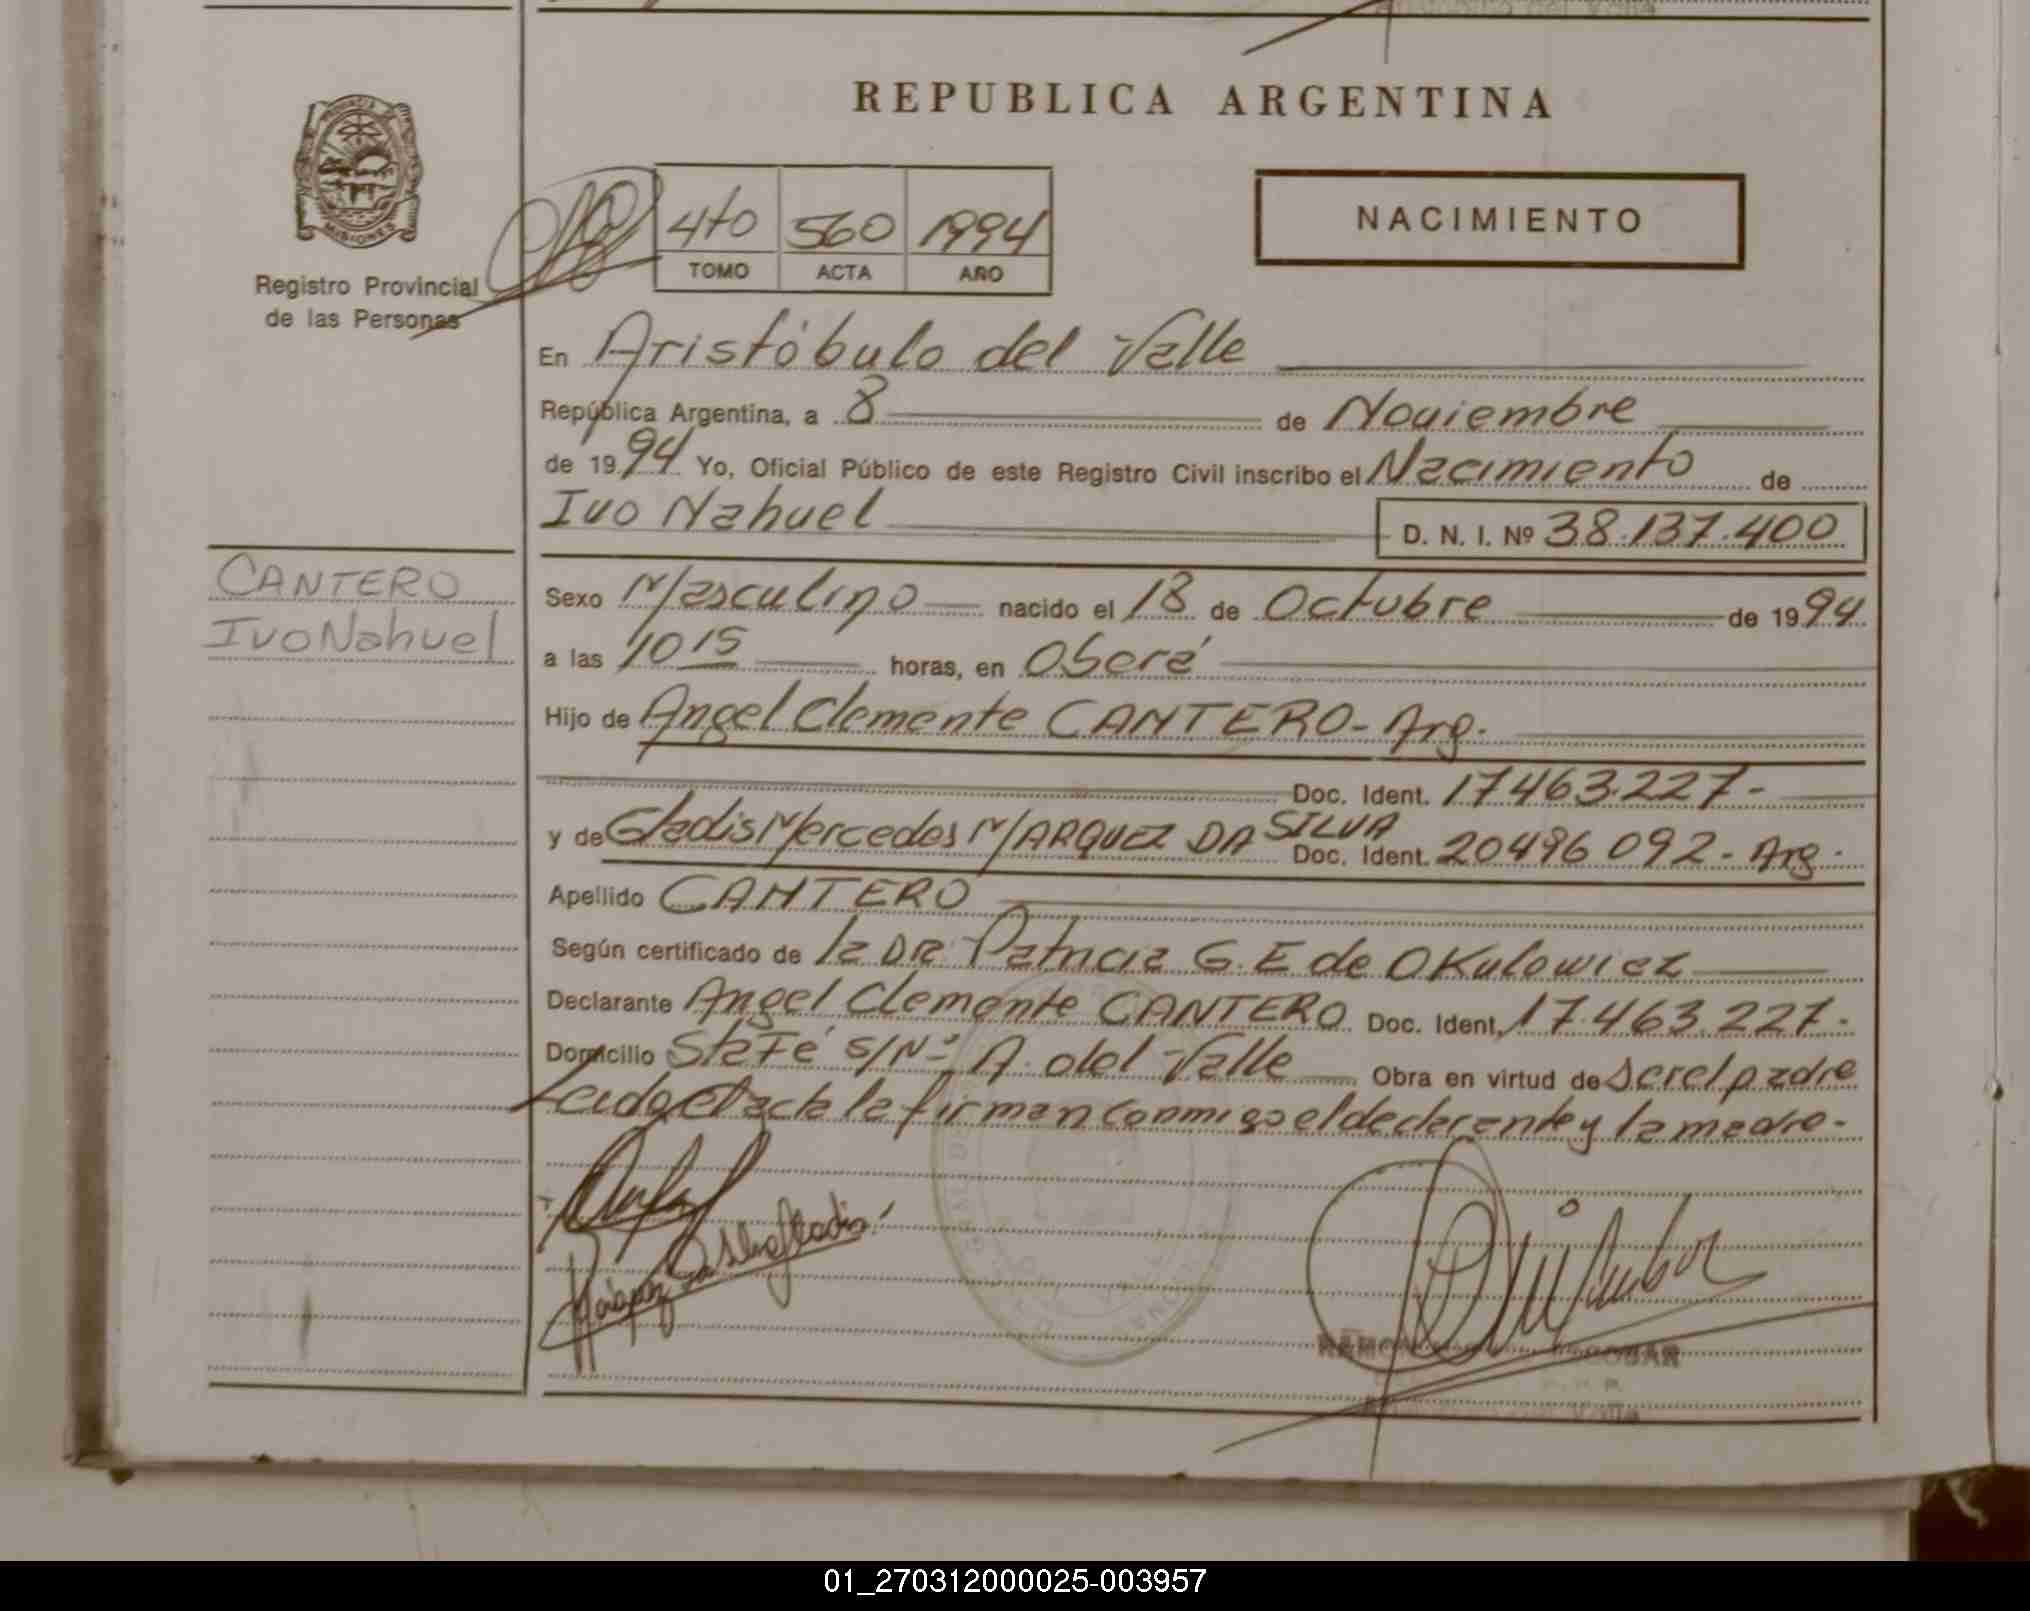 REPUBLICA ARGENTINA
PROVINCIA
MISIONES
Registro Provincial
de las Personas
4to 560 1994
TOMO ACTA AÑO
NACIMIENTO
En Aristóbulo del Valle
República Argentina, a 8 de Noviembre
de 1994 Yo, Oficial Público de este Registro Civil inscribo el Nacimiento de
Ivo Nahuel D. N. I. Nº 38.137.400
CANTERO
Ivo Nahuel
Sexo Masculino nacido el 18 de Octubre de 1994
a las 10 15 horas, en Oberá
Hijo de Angel Clemente CANTERO - Arg.
Doc. Ident. 17463.227-
y de Gladis Mercedes MARQUEZ DA SILVA Doc. Ident. 20496 092 - Arg.
Apellido CANTERO
Según certificado de la DRa Patricia G. E de OKulowicz
Declarante Angel Clemente CANTERO Doc. Ident. 17.463.227.
Domicilio Sta Fé S/Nº A. del Valle Obra en virtud de Ser el padre
Leida el acta la firman conmigo el declarante y la madre.
01_270312000025-003957